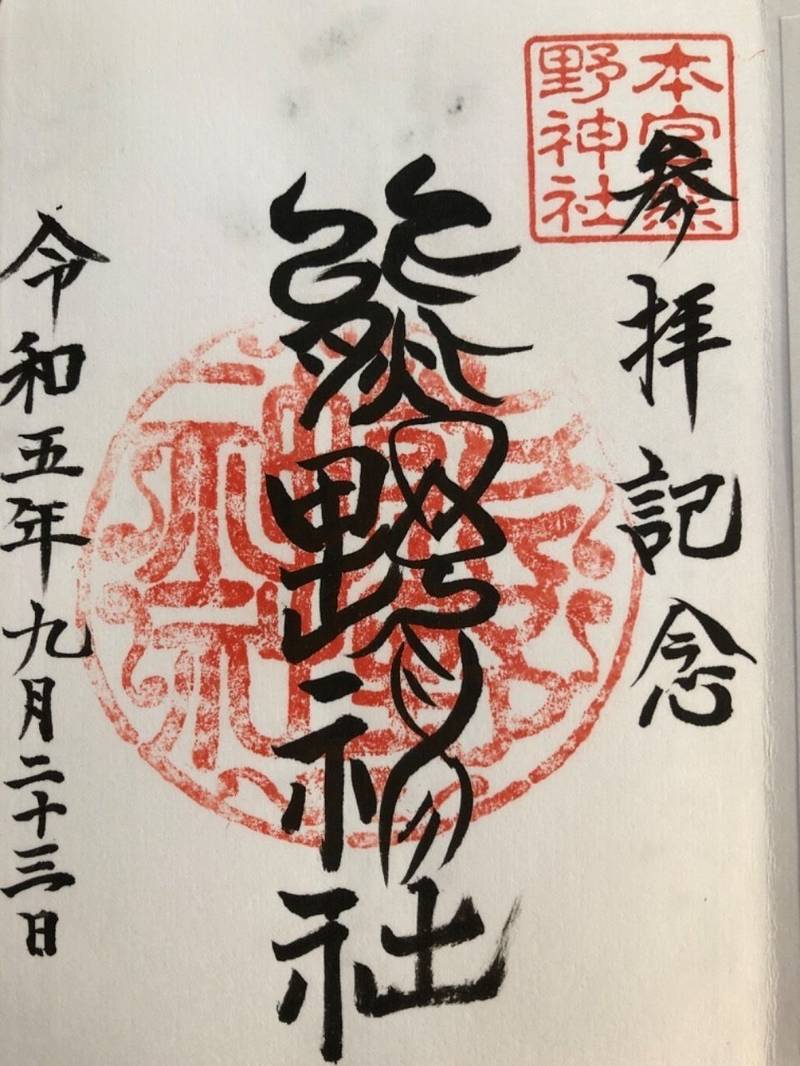 本宮熊
野神社
参拝記念
熊野神社
令和五年九月二十三日